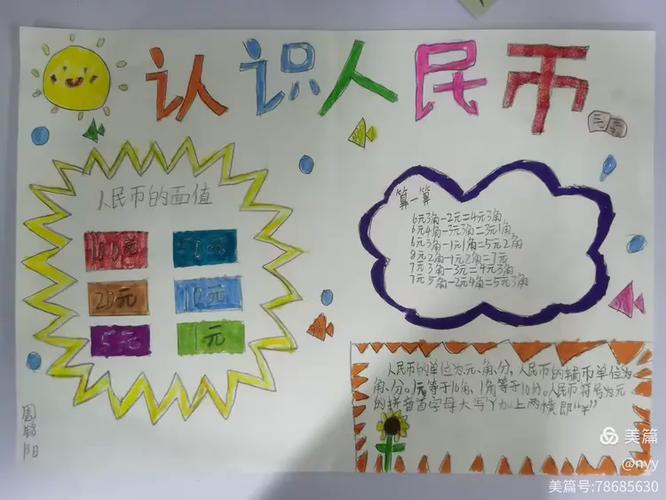 认识人民币
人民币的面值
100元 50元
20元 10元
5元 1元
算一算
6元3角-2元=4元3角
6元4角-3元3角=3元1角
6元3角-1元1角=5元2角
8元2角-1元2角=7元
7元3角-3元=4元3角
7元5角-2元4角=5元3角
人民币的单位为元、角、分，人民币的辅币单位为
角、分。1元等于10角，1角等于10分。人民币符号为元
的拼音首字母大写Y加上两横即"¥"
美篇
@nyy
美篇号:78685630